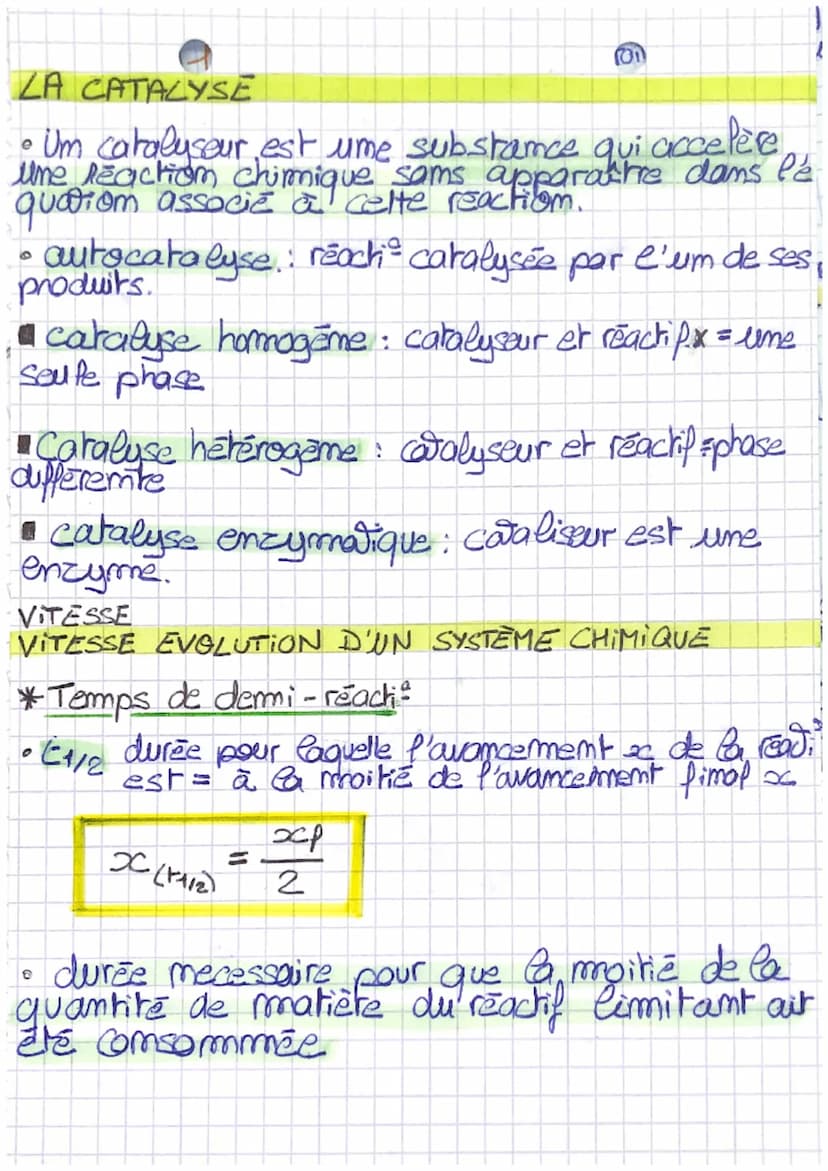 LA CATALYSE
• Un catalyseur est une substance qui accelère
une réaction chimique sans apparaître dans l'é
quation associé à cette réaction.
• autocatalyse : réacti° catalysée par l'un de ses
produits.
▪ catalyse homogène : catalyseur et réactifx = une
seule phase
▪ Catalyse hétérogène : catalyseur et réactif ≠ phase
différente
▪ catalyse enzymatique : cataliseur est une
enzyme.
VITESSE
VITESSE EVOLUTION D'UN SYSTÈME CHIMIQUE
* Temps de demi-réacti°
• t1/2 durée pour laquelle l'avancement x de la réacti°
est = à la moitié de l'avancement final x
x(t1/2) = xf/2
• durée necessaire pour que la moitié de la
quantité de matière du réactif limitant ait
été consommée